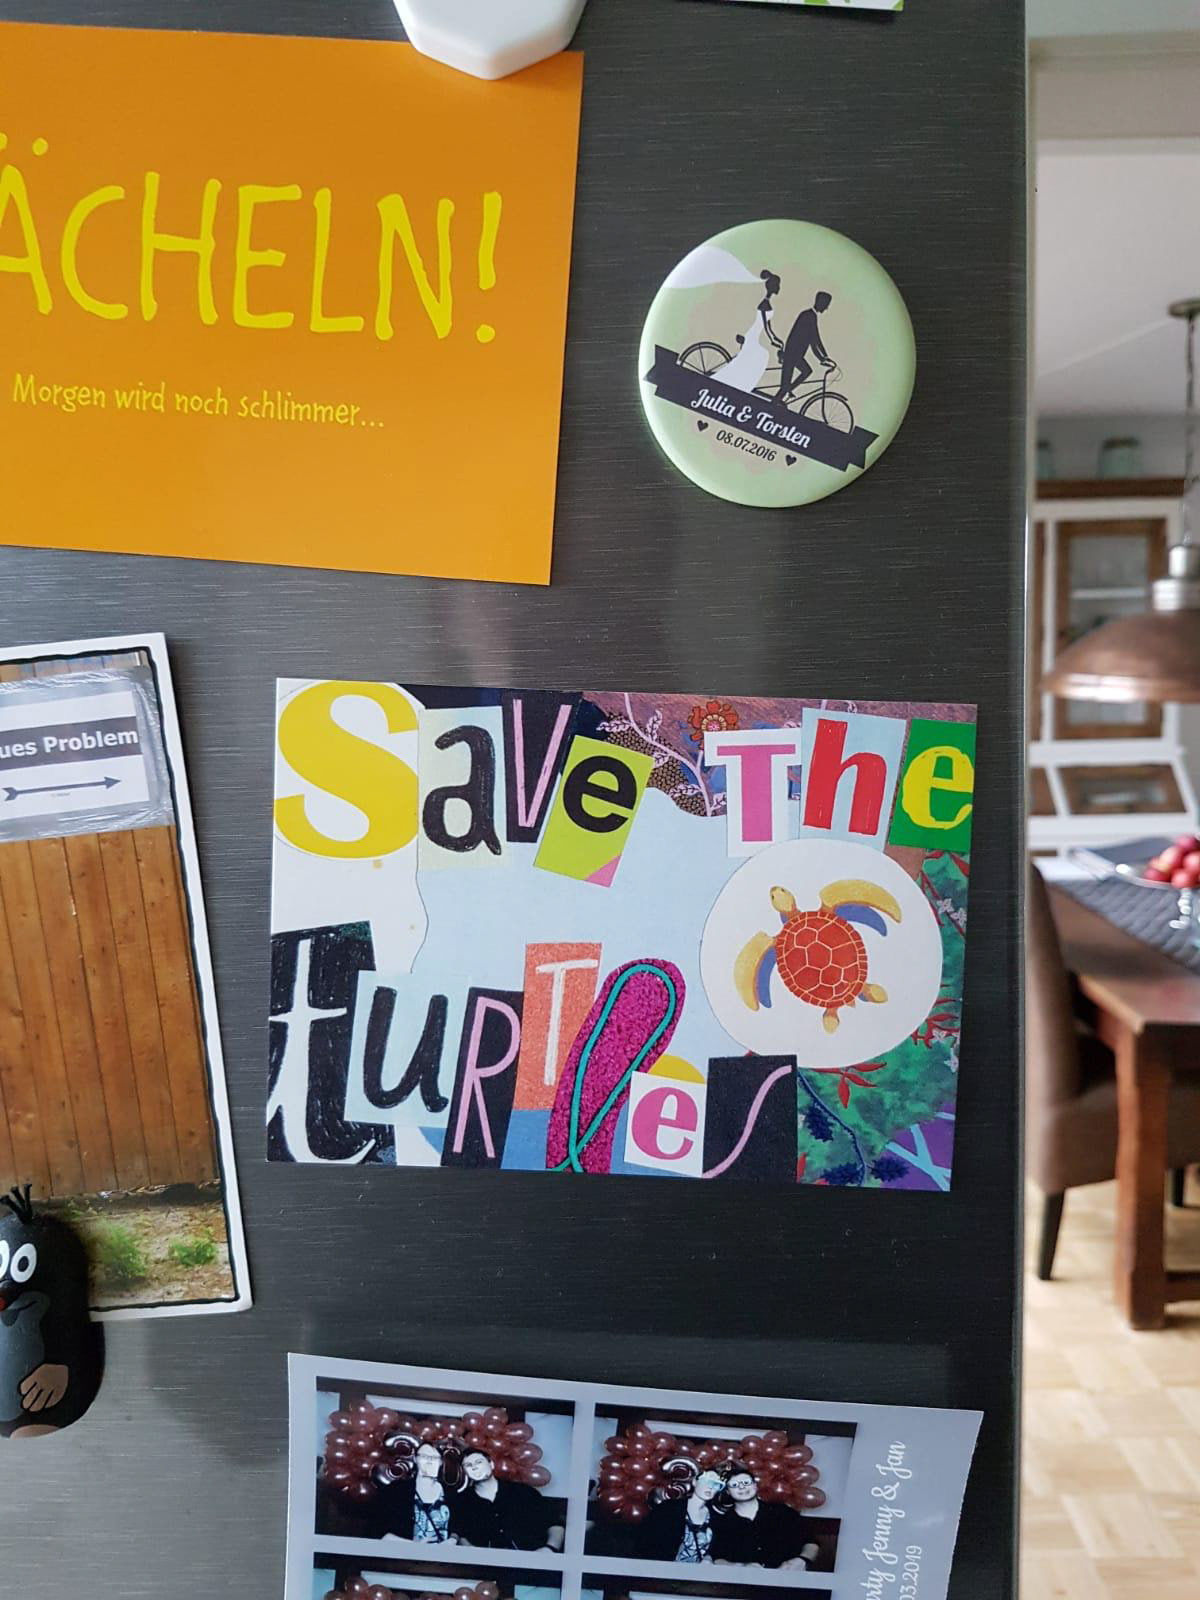 ÄCHELN!
Morgen wird noch schlimmer...
Julia & Torsten
08.07.2016
ues Problem
Save The
turTles
rty Jenny & Jan
03.2019